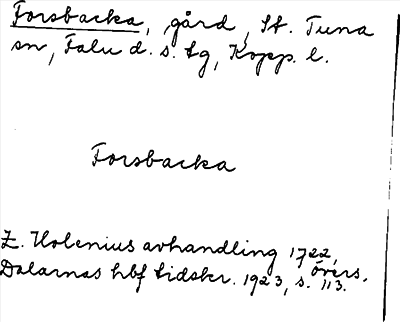 Forsbacka, gård, St. Tuna
sn, Falu d. s. tg, Kopp. l.
Forsbacka
Z. Holenius avhandling 1722, övers.
Dalarnas hbf tidskr. 1923, s. 113.